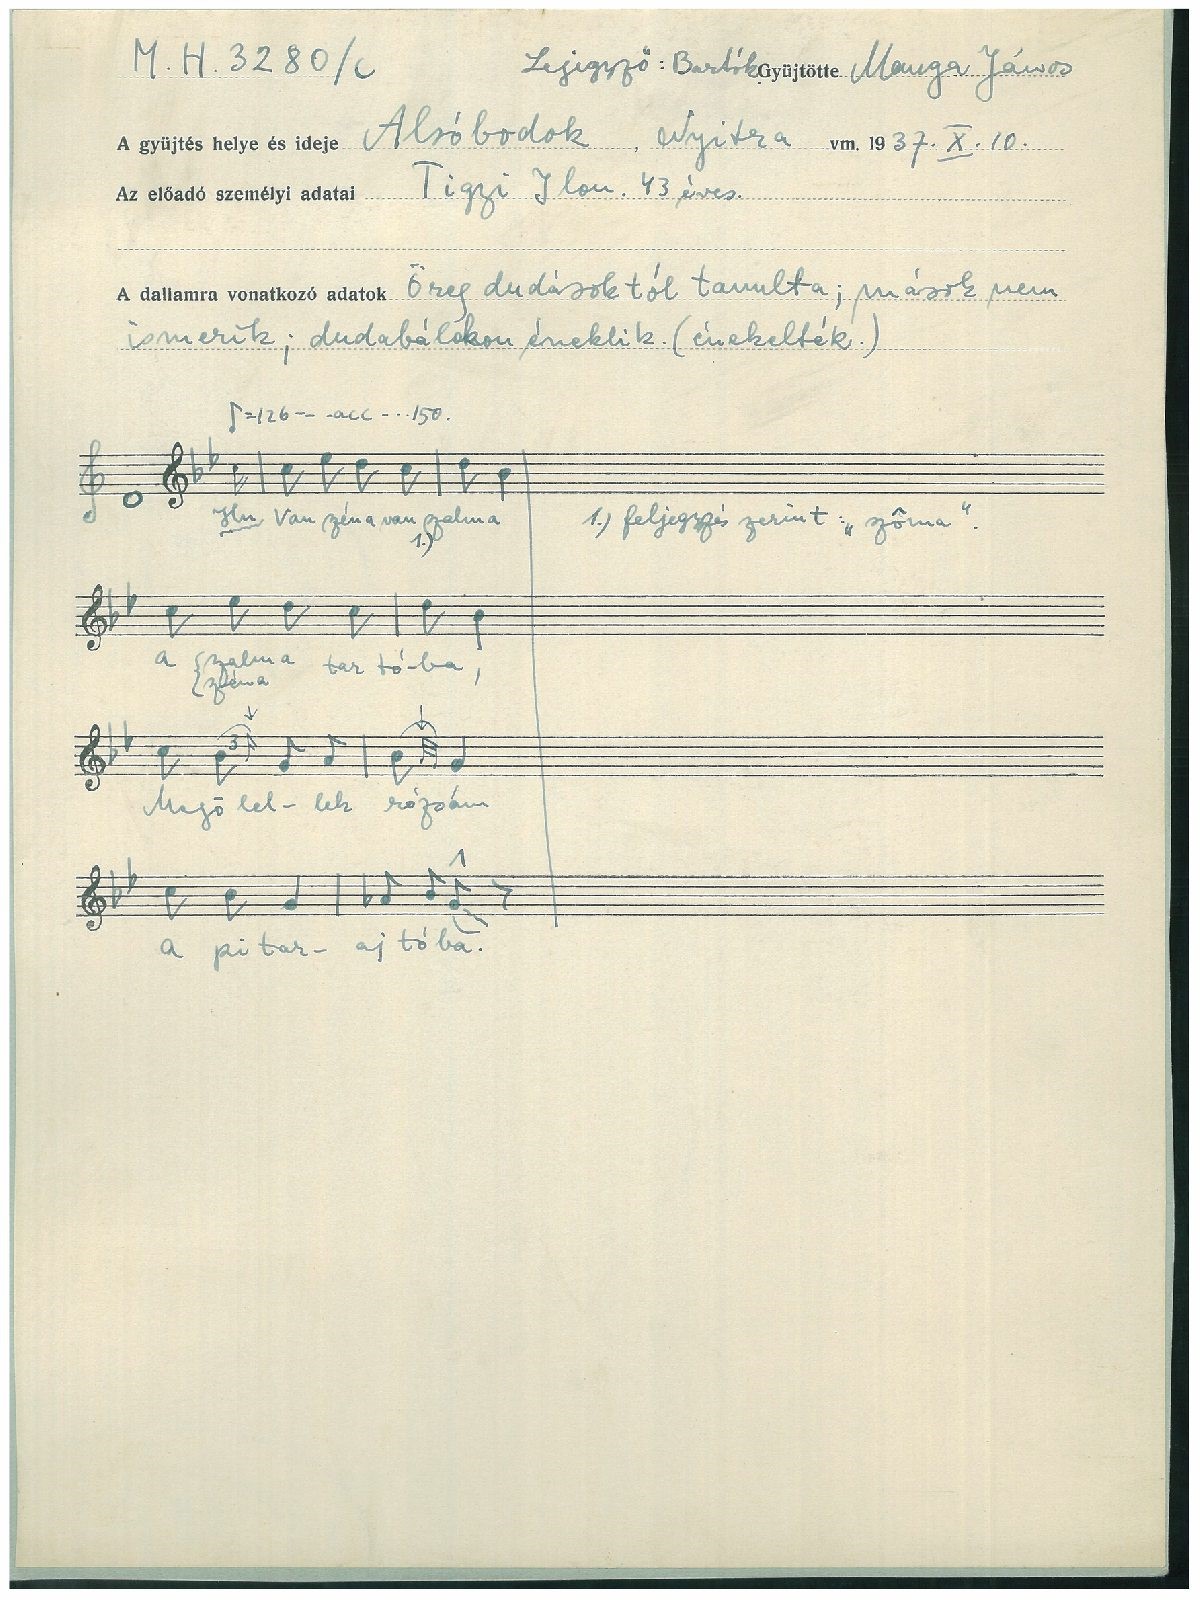 M. H. 3280/c Lejegyző: Bartók Gyüjtötte Manga János
A gyüjtés helye és ideje Alsóbodok, Nyitra vm. 1937. X. 10.
Az előadó személyi adatai Tigzi Ilon. 43 éves.
A dallamra vonatkozó adatok Öreg dudásoktól tanulta; mások nem
ismerik; dudabálokon éneklik. (énekelték.)
♪=126-- -acc - ··· 150.
Van széna van szalma 1.) feljegyzés szerint: „szôma".
1.)
a {szalma tartó-ba,
{széna
3
Magõ lel- lek rózsám
a pitar- ajtóba.